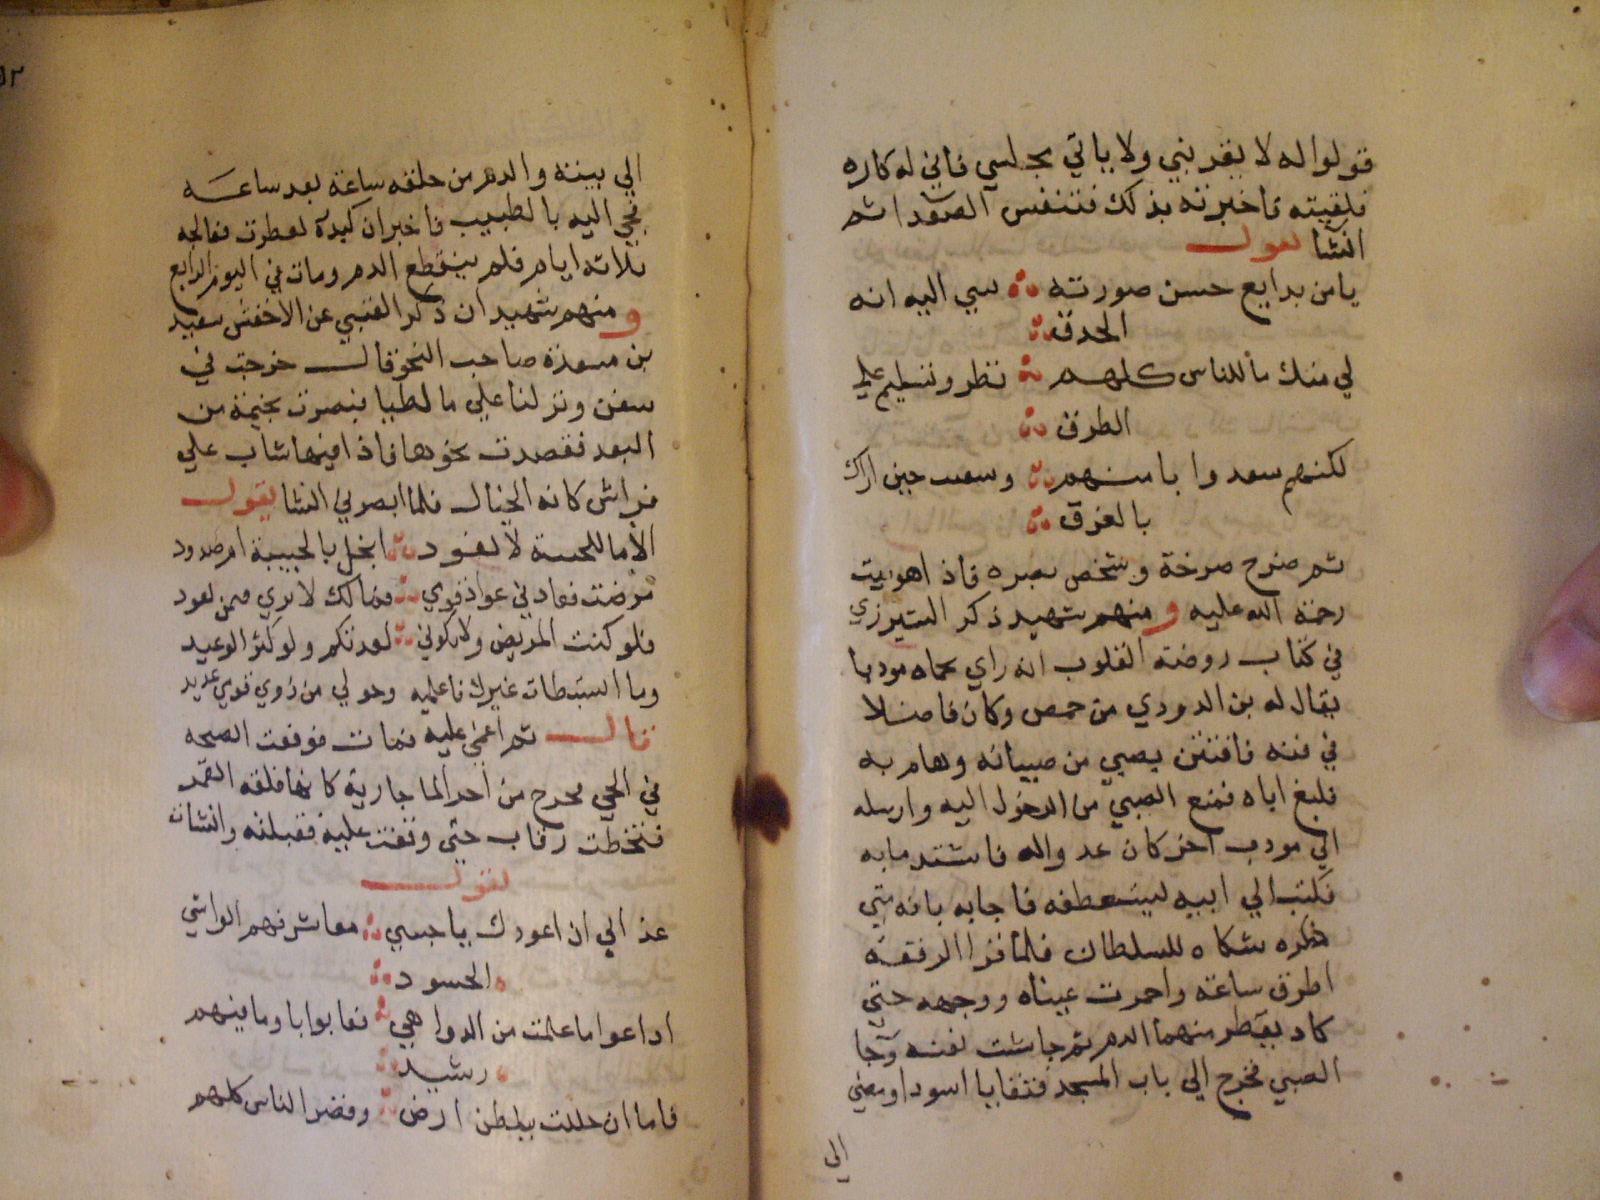 قولوا له لا يقربني ولا ياتي مجلسي فاني له كاره
فلقيته فاخبرته بذلك فتنفس الصعدا ثم
انشا يقول
يا من بدايع حسن صورته تثني اليه اعنة
الحدق
لي منك ما للناس كلهم نظر وتسليم علي
الطرق
لكنهم سعدوا بامنهم وشقيت حين اراك
بالفرق
ثم صرخ صرخة وشخص بصره فاذا هو ميت
رحمة الله عليه ومنهم شهيد ذكر الشيرزي
في كتاب روضة القلوب انه راي بحماه مودبا
يقال له بن الدودي من حمص وكان فاضلا
في فنه فافتتن بصبي من صبيانه وهام به
فبلغ اباه فمنع الصبي من الدخول اليه وارسله
الي مودب اخر كان عدوا له فاشتد ما به
فكتب الي ابيه ليستعطفه فاجابه بانه متي
ذكره شكاه للسلطان فلما قرا الرقعة
اطرق ساعة واحمرت عيناه ووجهه حتي
كاد يقطر منهما الدم ثم جاشت نفسه وجا
الصبي فخرج الي باب المسجد فتقايا اسودا ومضي
الي
٥٢
الي بيته والدم من حلقه ساعة بعد ساعة
فجي اليه بالطبيب فاخبر ان كبده تفطرت فعالجه
ثلاثة ايام فلم ينقطع الدم ومات في اليوم الرابع
ومنهم شهيدان ذكر القتبي عن الاخفش سعيد
بن مسعدة صاحب النحو قال خرجت في
سفر ونزلنا علي ما لطيا فبصرت بخيمة من
البعد فقصدت نحوها فاذا فيها شاب علي
فراش كانه الخيال فلما ابصرني انشا يقول
الا ما للحبيبة لا تعود ابخل بالحبيبة ام صدود
مرضت فعادني عواد قومي فما لك لا تري فيمن يعود
فلو كنت المريض ولا تكوني لعدتكم ولو كثر الوعيد
وما استبطات غيرك فاعلميه وحولي من ذوي قومي عديد
قال ثم اغمي عليه فمات فوقعت الصيحة
في الحي فخرج من اخر الما جارية كانها فلقة القمر
فتخطت رقاب حتي وقفت عليه فقبلته وانشات
تقول
عداني ان اعودك يا حبيبي معاشر فيهم الواشي
الحسود
اذاعوا ما علمت من الدواهي فعابونا وما فيهم
رشيد
فاما ان حللت ببطن ارض وقصر الناس كلهم